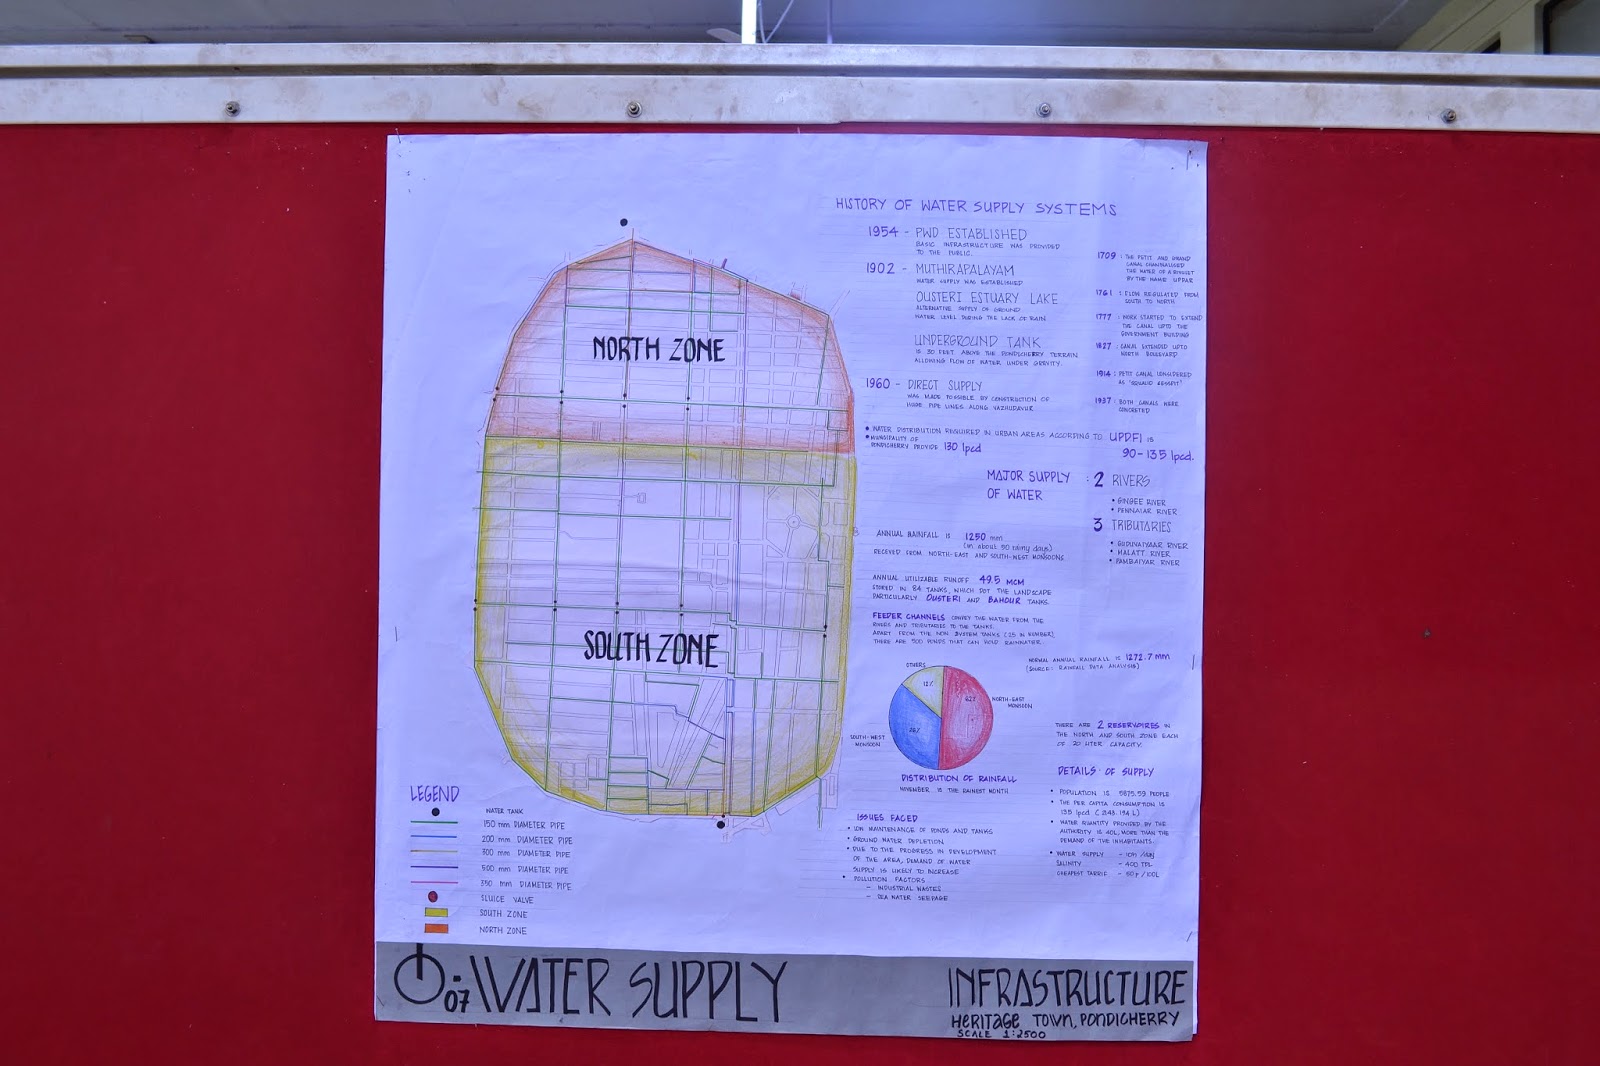 HISTORY OF WATER SUPPLY SYSTEMS
1954 - PWD ESTABLISHED
BASIC INFRASTRUCTURE WAS PROVIDED
TO THE PUBLIC.
1902 - MUTHIRAPALAYAM
WATER SUPPLY WAS ESTABLISHED
OUSTERI ESTUARY LAKE
ALTERNATIVE SUPPLY OF GROUND
WATER LEVEL DURING THE LACK OF RAIN
UNDERGROUND TANK
IS 30 FEET ABOVE THE PONDICHERRY TERRAIN
ALLOWING FLOW OF WATER UNDER GRAVITY.
1960 - DIRECT SUPPLY
WAS MADE POSSIBLE BY CONSTRUCTION OF
HUGE PIPE LINES ALONG VAZHUDAVUR
1709 : THE PETIT AND GRAND
CANAL CHANNALISED
THE WATER OF A RIVULET
BY THE NAME UPPAR
1761 : FLOW REGULATED FROM
SOUTH TO NORTH
1777 : WORK STARTED TO EXTEND
THE CANAL UPTO THE
GOVERNMENT BUILDING
1827 : CANAL EXTENDED UPTO
NORTH BOULEVARD
1914 : PETIT CANAL CONSIDERED
AS
1937 : BOTH CANALS WERE
CONCRETED
• WATER DISTRIBUTION REQUIRED IN URBAN AREAS ACCORDING TO UPDFI IS
90-135 lpcd.
• MUNICIPALITY OF
PONDICHERRY PROVIDE 130 lpcd
MAJOR SUPPLY
OF WATER
: 2 RIVERS
• GINGEE RIVER
• PENNAIAR RIVER
3 TRIBUTARIES
• GUDUVAIYAAR RIVER
• MALATT RIVER
• PAMBAIYAR RIVER
ANNUAL RAINFALL IS 1250 mm
(in about 50 rainy days)
RECEIVED FROM NORTH-EAST AND SOUTH-WEST MONSOONS
ANNUAL UTILIZABLE RUNOFF 49.5 MCM
STORED IN 84 TANKS, WHICH DOT THE LANDSCAPE
PARTICULARLY OUSTERI AND BAHOUR TANKS.
FEEDER CHANNELS CONVEY THE WATER FROM THE
RIVERS AND TRIBUTARIES TO THE TANKS.
APART FROM THE NON SYSTEM TANKS (25 IN NUMBER)
THERE ARE 500 PONDS THAT CAN HOLD RAINWATER.
NORMAL ANNUAL RAINFALL IS 1272.7 mm
(SOURCE: RAINFALL DATA ANALYSIS)
OTHERS
12%
NORTH-EAST
MONSOON
SOUTH-WEST
MONSOON
DISTRIBUTION OF RAINFALL
NOVEMBER IS THE RAINEST MONTH
THERE ARE 2 RESERVOIRES IN
THE NORTH AND SOUTH ZONE EACH
OF 20 LITER CAPACITY.
DETAILS OF SUPPLY
• POPULATION IS 5875.59 PEOPLE
• THE PER CAPITA CONSUMPTION IS
135 lpcd
• WATER QUANTITY PROVIDED BY THE
AUTHORITY IS 40L, MORE THAN THE
DEMAND OF THE INHABITANTS.
• WATER SUPPLY
SALINITY - 400
CHEAPEST TARRIF
ISSUES FACED
• LOW MAINTENANCE OF PONDS AND TANKS
• GROUND WATER DEPLETION
• DUE TO THE PROGRESS IN DEVELOPMENT
OF THE AREA, DEMAND OF WATER
SUPPLY IS LIKELY TO INCREASE
• POLLUTION FACTORS
- INDUSTRIAL WASTES
- SEA WATER SEEPAGE
NORTH ZONE
SOUTH ZONE
LEGEND
WATER TANK
150 mm DIAMETER PIPE
200 mm DIAMETER PIPE
300 mm DIAMETER PIPE
500 mm DIAMETER PIPE
350 mm DIAMETER PIPE
SLUICE VALVE
SOUTH ZONE
NORTH ZONE
07 WATER SUPPLY
INFRASTRUCTURE
HERITAGE TOWN, PONDICHERRY
SCALE 1:2500